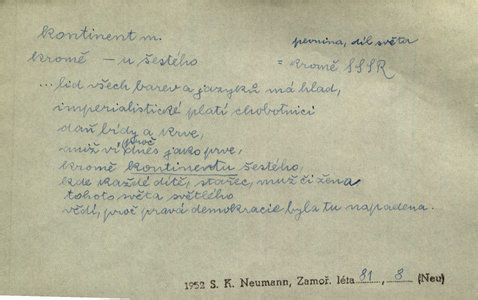 kontinent m.
pevnina, díl světa
kromě – u šestého
= kromě SSSR
...lid všech barev a jazyků má hlad,
imperialistické platí chobotnici
daň bídy a krve,
aniž ví proč dnes jako prve,
kromě kontinentu šestého,
kde každé dítě, stařec, muž či žena
tohoto světa světlého
vědí, proč pravá demokracie byla tu napadena.
1952 S. K. Neumann, Zamoř. léta 81, 8 (Neu)